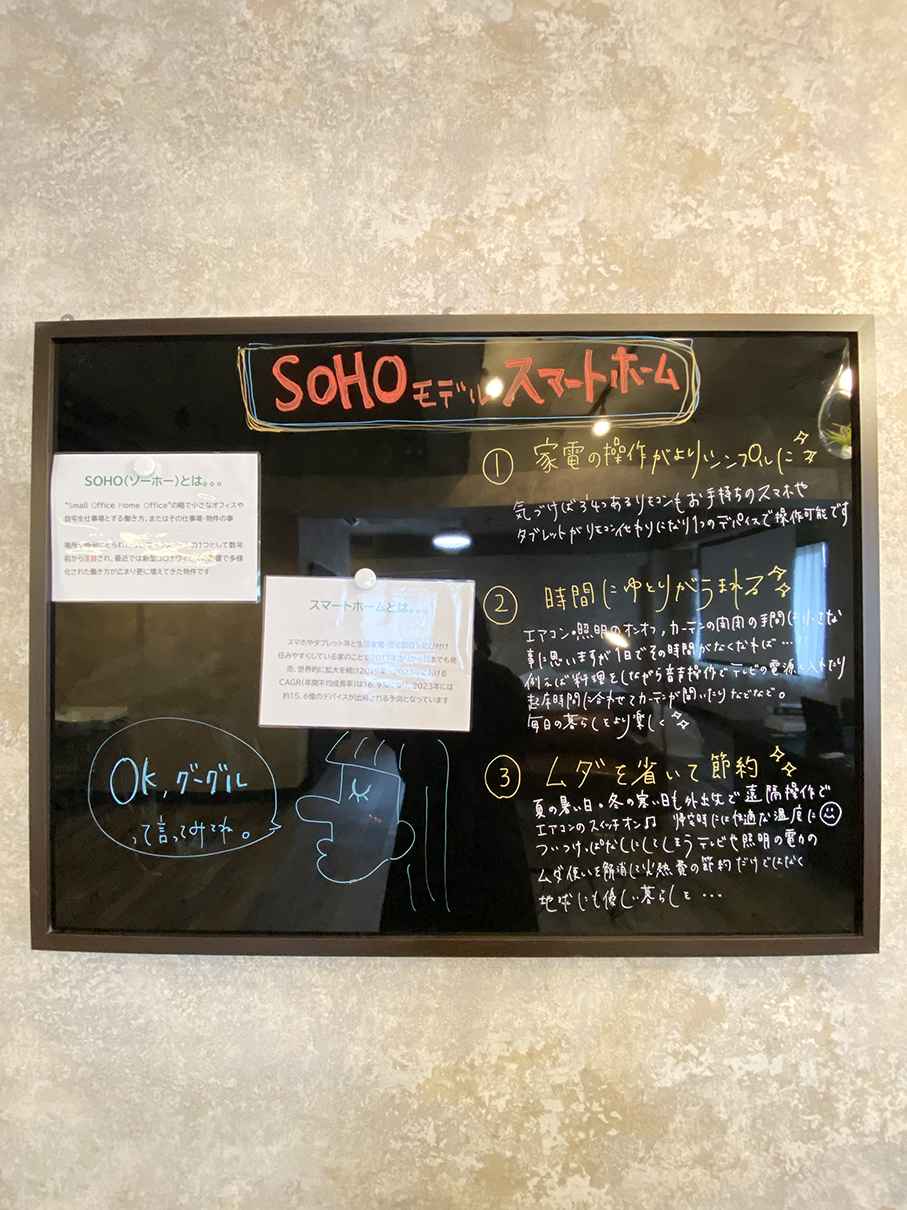 SOHO モデル スマートホーム
SOHO(ソーホー)とは。。。
"Small Office Home Office"の略で小さなオフィスや
自宅を仕事場とする働き方、またはその仕事場・物件の事
1つとして数年
前から注目され、最近では新型コロナウィ
で多様
化された働き方が広まり更に増えてきた物件です
スマートホームとは。。。
スマホやタブレット等と
住みやすくしている家のことを
までも発
売、世界的に拡大を続け
における
CAGR(年間平均成長率)は
2023年には
約15.6億のデバイスが出荷される予測となっています
OK,グーグル
って言ってみてね。
① 家電の操作がよりシンプルに
気づけば3つ4つあるリモコンもお手持ちのスマホや
タブレットがリモコン代わりになり1つのデバイスで操作可能です
② 時間にゆとりがうまれる
エアコン。照明のオンオフ,カーテンの開閉の手間は小さな
事に思いますが1日でその時間がなくなれば…
例えば料理をしながら音声操作でテレビの電源を入れたり
起床時間に合わせてカーテンが開いたりなどなど。
毎日の暮らしをより楽しく
③ ムダを省いて節約
夏の暑い日。冬の寒い日も外出先で遠隔操作で
エアコンのスイッチオン♫ 帰宅時には快適な温度に
ついつけっぱなしにしてしまうテレビや照明の電力の
ムダ使いを解消して光熱費の節約だけではなく
地球にも優しい暮らしを…